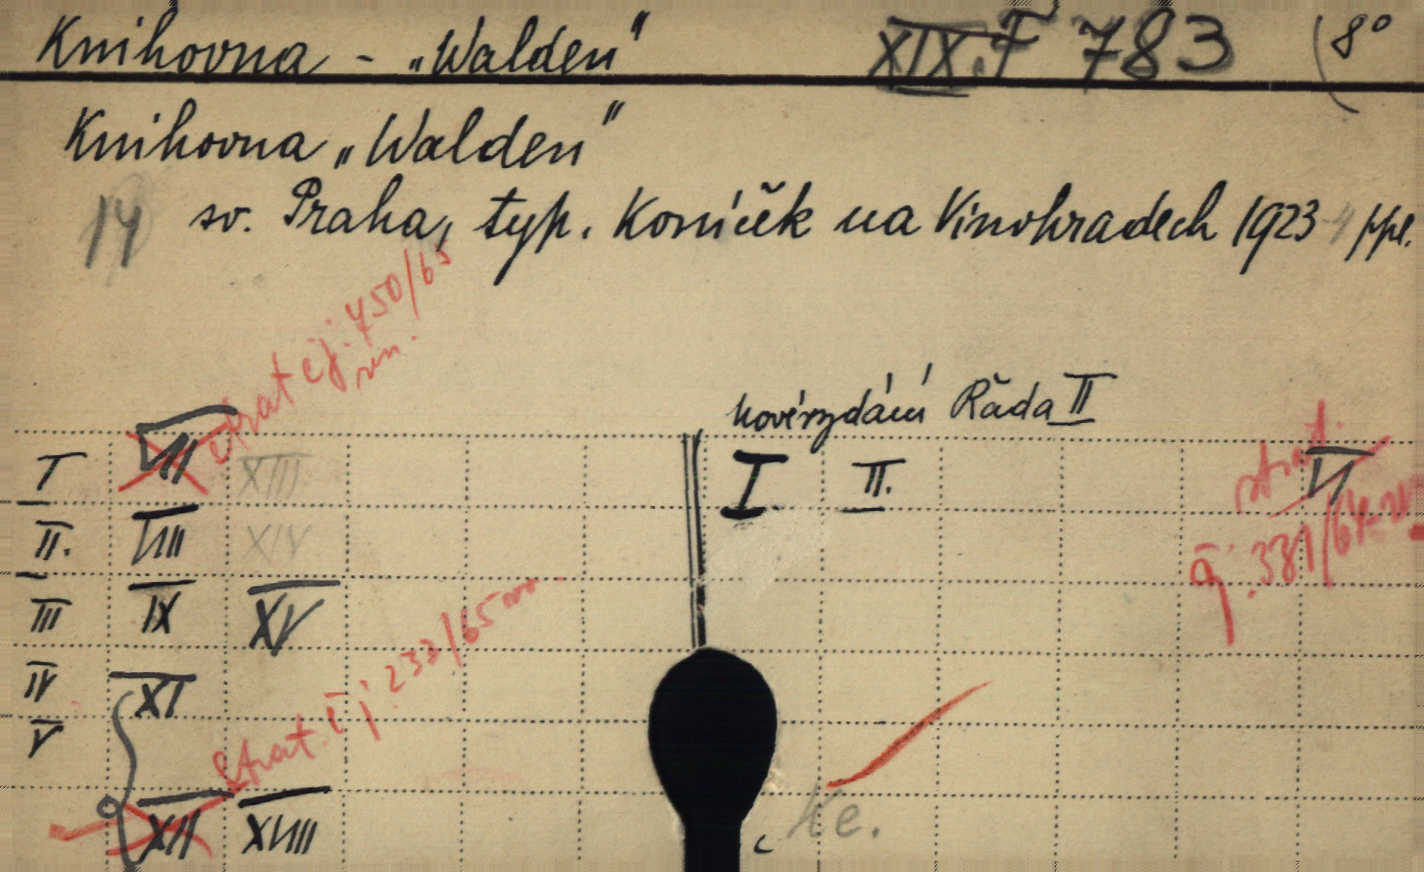 Knihovna - „Walden" XIX.F 783 (8°
Knihovna „Walden"
14 sv. Praha, typ. Koníček na Vinohradech 1923-4
čj. 450/65
nové vydání Řada II
I VII XIII I II. VI
II. VIII XIV
čj. 381/64
III IX XV
IV XI
V
Ztrat. čj. 232/65
XII XVIII Ke.